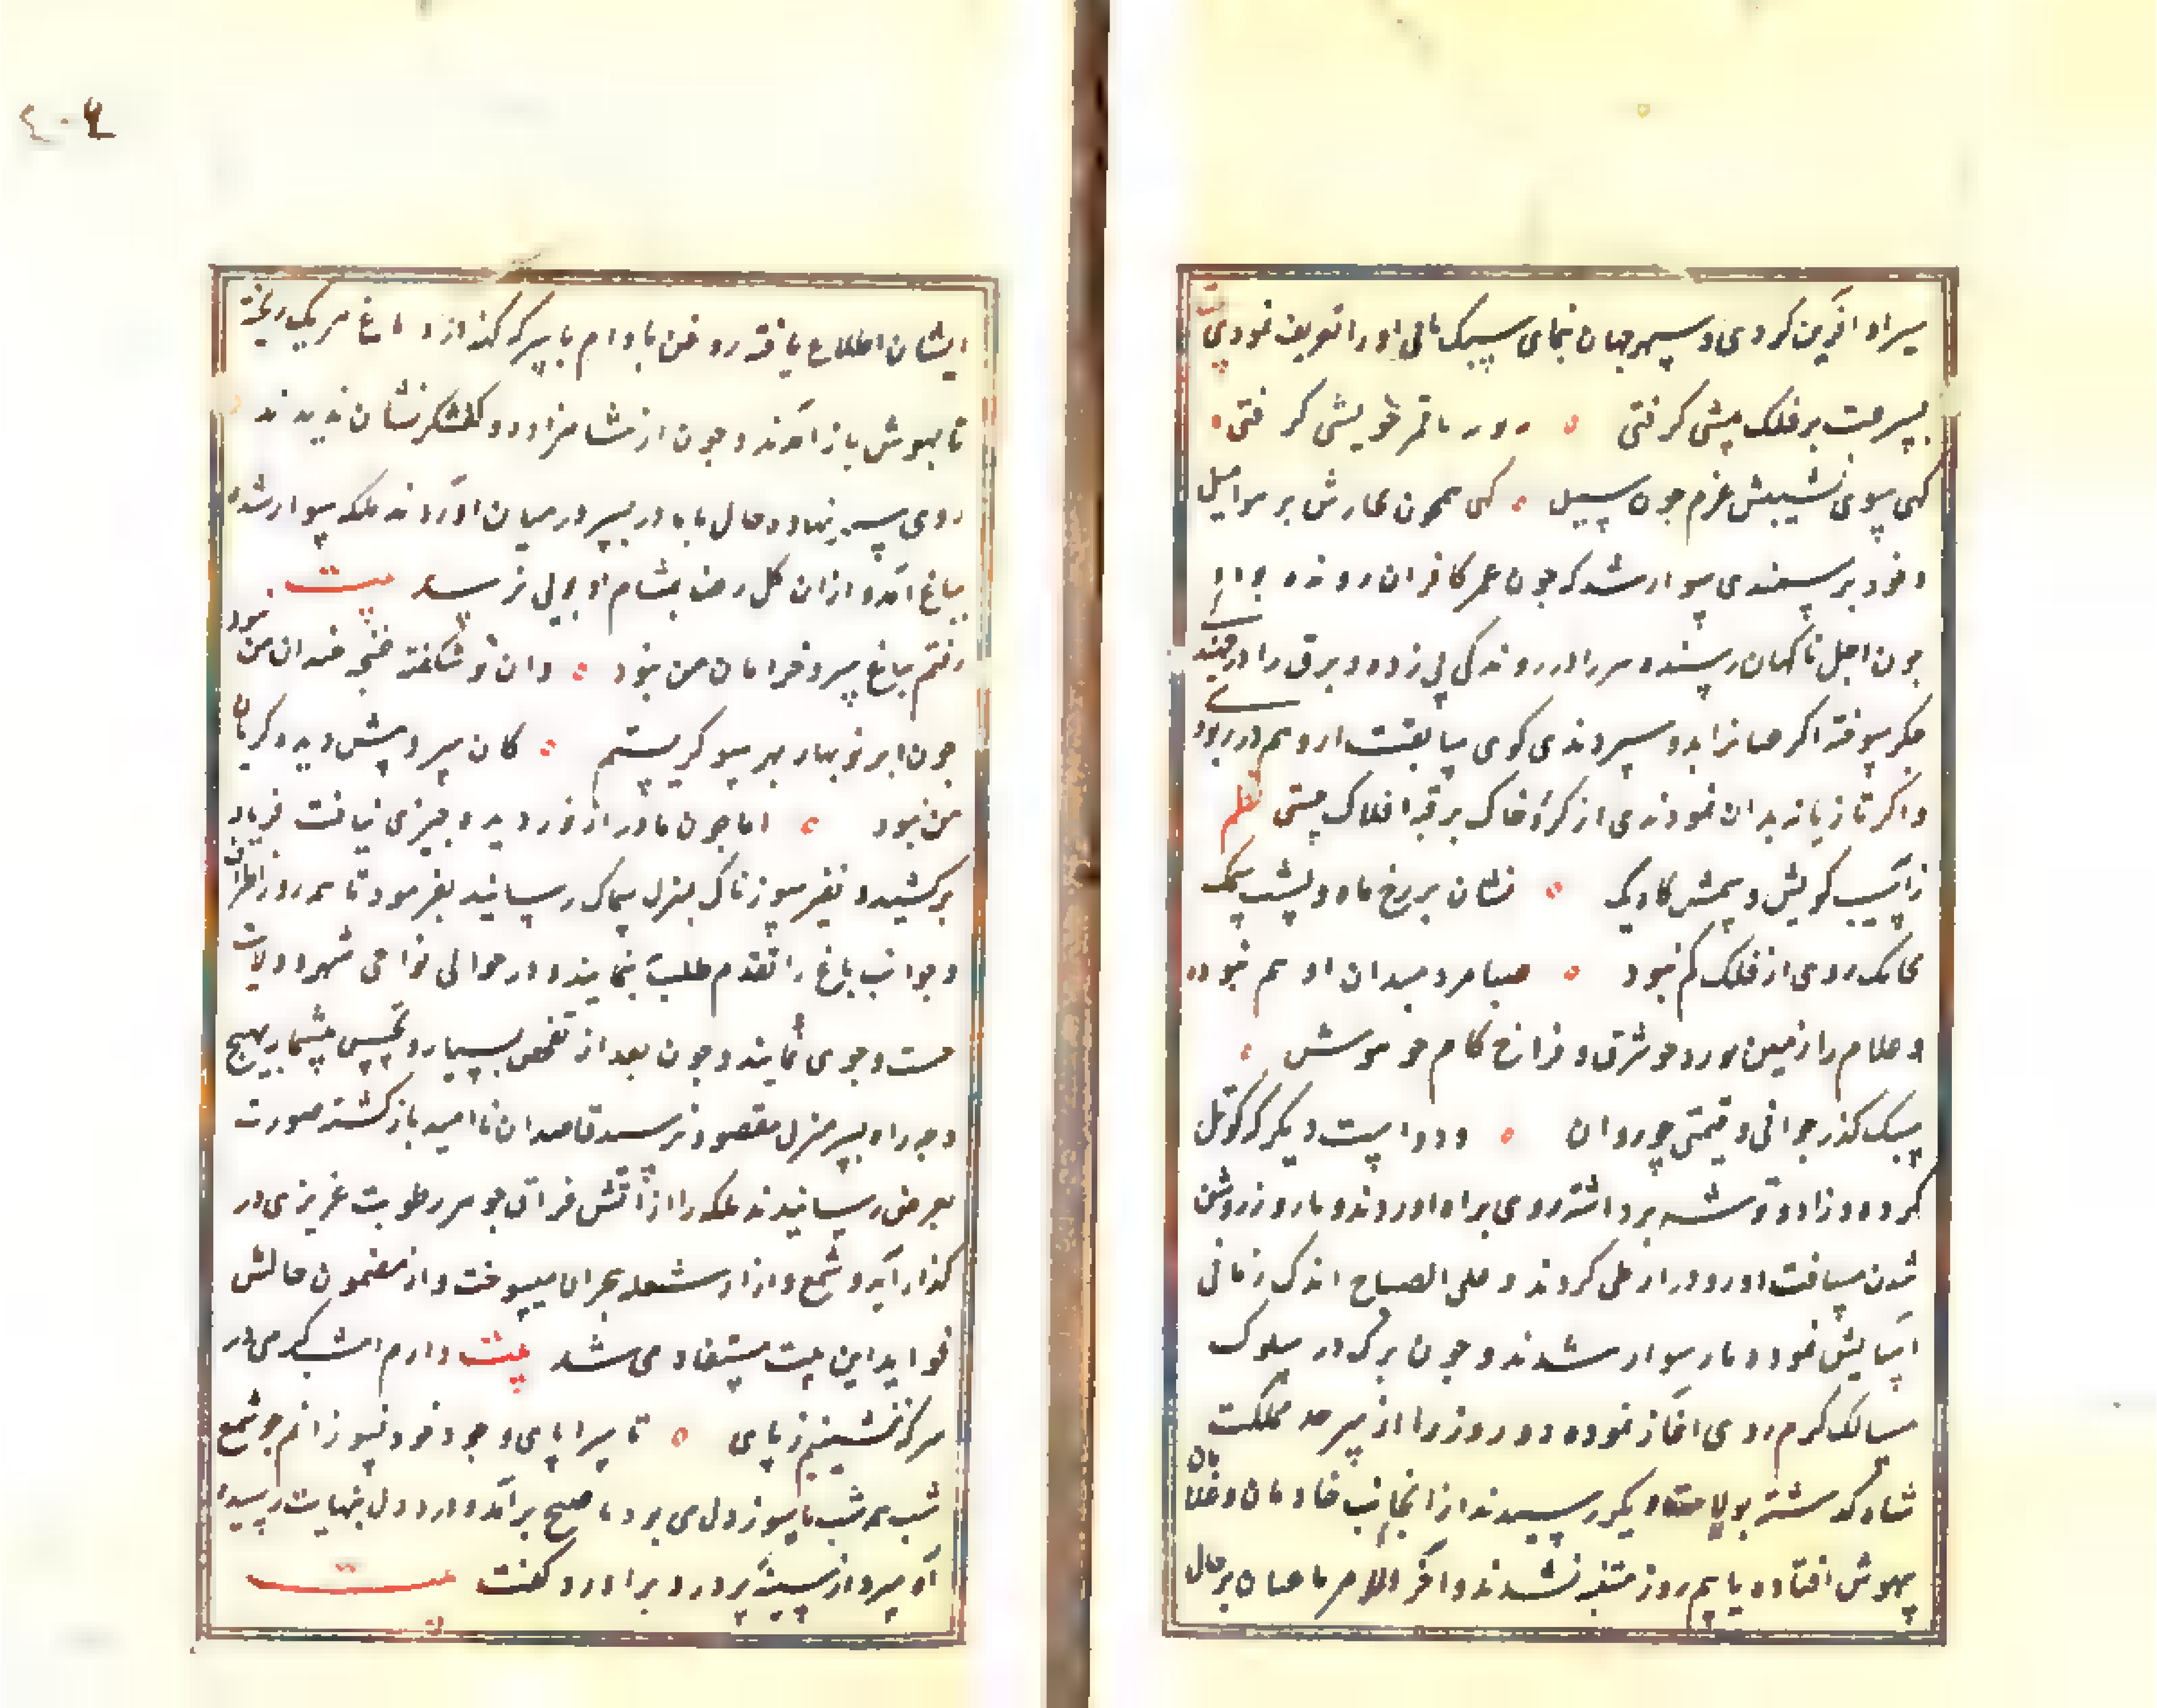 سیر او آفرین کردی و سپهر جهان نمای سبک تالی او را تعریف نمودی بیت
بسرعت بر فلک پیشی گرفتی ه دور ما قمر خویشی گرفتی ه
گهی سوی نشیبش عزم چون سیل ه گهی همچون
و خود بر سمندی سوار شد که چون عمر کافران رونده بود و
چون اجل ناگهان رسنده صرصر را در روندگی پی زده و برق را در جهندگی
جگر سوخته اگر عنانرا بدو سپردندی گوی سابقت از وهم در ربودی
و اگر تازیانه بدان نمودندی از کره خاک بر قبه افلاک جستی نظم
ز آسیب گویش و سمش گاو تک ه نشان بر رخ ماه و پشت سمک
بتک روی از فلک کم نبود ه صبا مرد میدان او هم نبود ه
و غلام را زمین نورد چو شرق و فراخ کام چو هوش ه
سبک گذر جوانی و قیمتی چو روان ه و دو اسب دیگر که کوتل
کرده و زاد و توشه برداشته روی براه آوردند و تا روز روشن
شدن مسافت دور و دراز طی کردند و علی الصباح اندک زمانی
آسایش نمودند باز سوار شدند و چون برق در سلوک
مسالک گرم روی آغاز نموده دو روز را از سرحد مملکت
شاه گذشته بولایت دیگر رسیدند از انجانب خادمان و غلامان
بیهوش افتاده تا نیم روز متنبه نشدند و آخر الامر باغبان بر حال
ایشان اطلاع یافته روغن بادام با سرکه کنه در دماغ هر یک ریخته
تا بهوش باز آمدند و چون از شاهزاده و گلشکر نشان ندیدند
روی بشهر نهاد و حال با مادر پسر در میان آوردند ملکه سوار شده
بباغ آمد و از ان گل رعنا بمشام او بویی نرسید بیت
رفتم بباغ سرو خرامان من نبود ه وان نو شکفته غنچه خندان من نبود
چون ابر نوبهار بهر سو گریستم ه کان سرو پیش دیده گریان
من نبود ه اما چون مادر از فرزند دیده چیزی نیافت فریاد
برکشید و نفیر سوزناک بمنزل سماک رسانید بفرمود تا همه روز اطراف
و جوانب باغ را بقدم طلب بپیمایند و در حوالی نواحی شهر و ولایات
جست و جوی نمایند و چون بعد از تفحص بسیار و تجسس بیشمار بهیچ
وجه راه بسر منزل مقصود نرسید قاصدان نا امید بازگشته صورت
بعرض رسانیدند ملکه را از آتش فراق جوهر رطوبت غریزی در
گداز آمد و شمع وار از شعله هجران میسوخت و از مضمون حالش
فواید این بیت مستفاد می شد بیت دارم امشب که می در
سر که ننشینم ز پای ه تا سراپای وجود خود نسوزانم چو شمع
شب همه شب با سوز دل می برد تا صبح برآمد و درد دل بنهایت رسیده
آه سرد از سینه پر درد برآورد و گفت بیت
٤٠٢